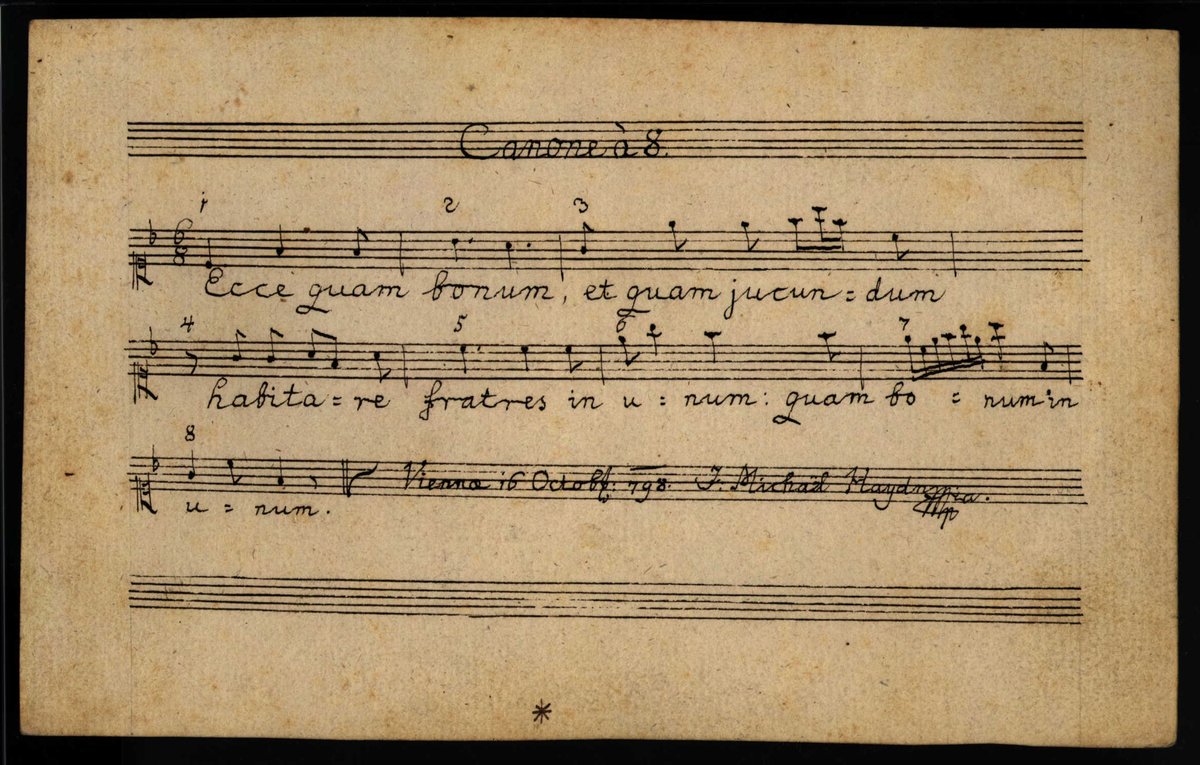 Canone à 8.
1 2 3
6
8
Ecce quam bonum, et quam jucun = dum
4 5 6 7
habita = re fratres in u = num: quam bo = num in
8
Vienna 16 Octobr. 798. J. Michael Haydn mpia.
u = num.